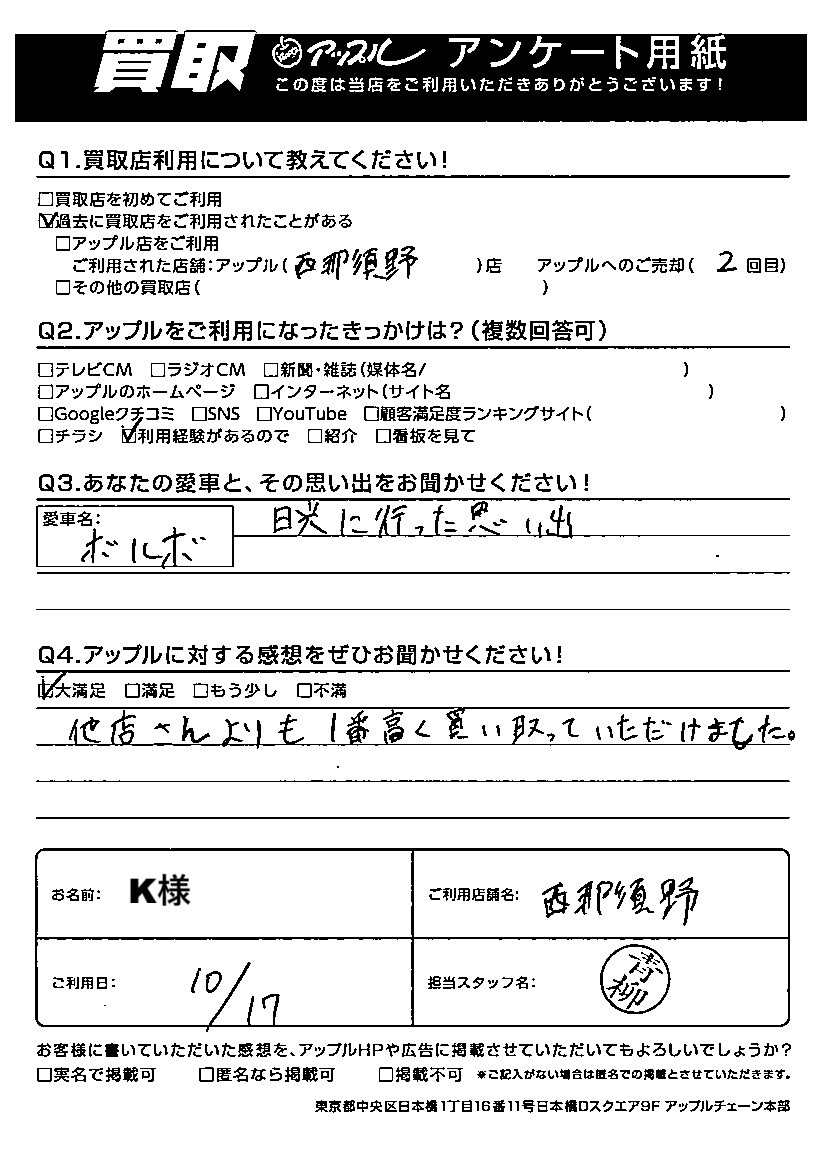 買取 アップル アンケート用紙
この度は当店をご利用いただきありがとうございます!
Q1.買取店利用について教えてください!
□買取店を初めてご利用
☑過去に買取店をご利用されたことがある
□アップル店をご利用
ご利用された店舗:アップル(西那須野)店 アップルへのご売却(2回目)
□その他の買取店( )
Q2.アップルをご利用になったきっかけは?(複数回答可)
□テレビCM □ラジオCM □新聞・雑誌(媒体名/ )
□アップルのホームページ □インターネット(サイト名 )
□Googleクチコミ □SNS □YouTube □顧客満足度ランキングサイト( )
□チラシ ☑利用経験があるので □紹介 □看板を見て
Q3.あなたの愛車と、その思い出をお聞かせください!
愛車名:
ボルボ
日光に行った思い出
Q4.アップルに対する感想をぜひお聞かせください!
☑大満足 □満足 □もう少し □不満
他店さんよりも1番高く買い取っていただけました。
お名前: K様
ご利用店舗名: 西那須野
ご利用日: 10/17
担当スタッフ名: 青柳
お客様に書いていただいた感想を、アップルHPや広告に掲載させていただいてもよろしいでしょうか?
□実名で掲載可 □匿名なら掲載可 □掲載不可 *ご記入がない場合は匿名での掲載とさせていただきます。
東京都中央区日本橋1丁目16番11号日本橋Dスクエア9F アップルチェーン本部